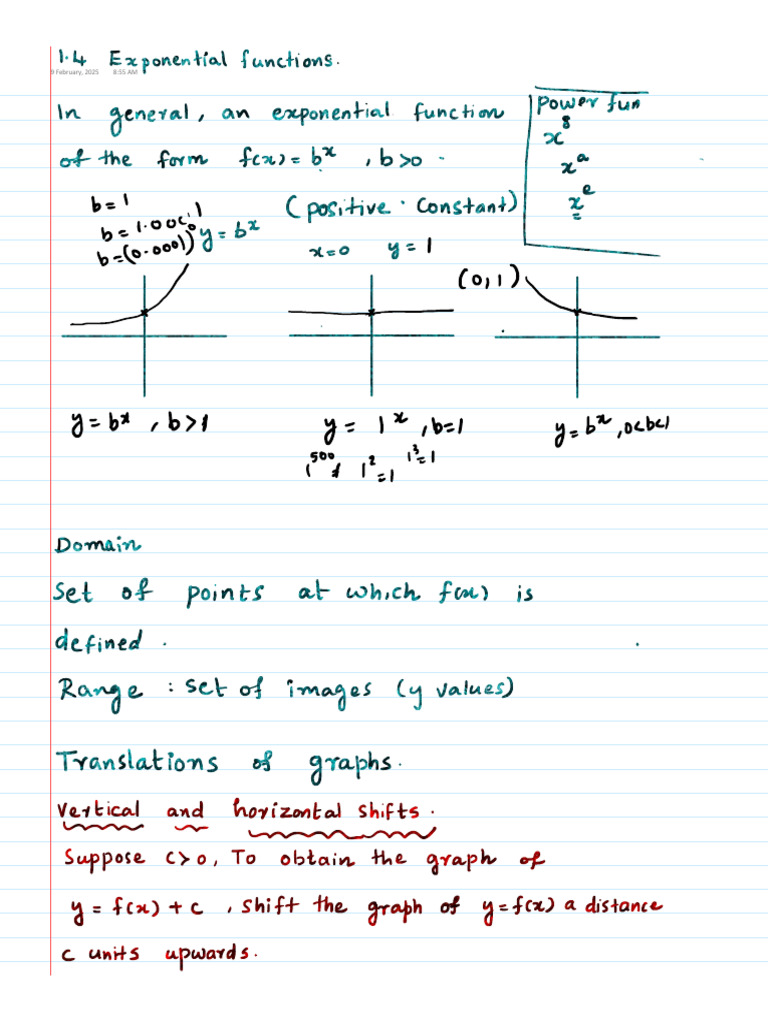 1.4 Exponential functions.
February, 2025 8:55 AM
In general, an exponential function
of the form f(x) = b^x , b>0.
(positive constant)
power fun
x^8
x^a
x^e
b=1
b=1.000.1
b=(0.0001)
y=b^x
x=0 y=1
(0,1)
y=b^x , b>1
y= 1^x , b=1
y=b^x , 0<b<1
1^500 1^2=1 1^3=1
Domain
Set of points at which f(x) is
defined.
Range : set of images (y values)
Translations of graphs.
Vertical and horizontal shifts.
Suppose c>0, To obtain the graph of
y = f(x) + c , shift the graph of y=f(x) a distance
c units upwards.